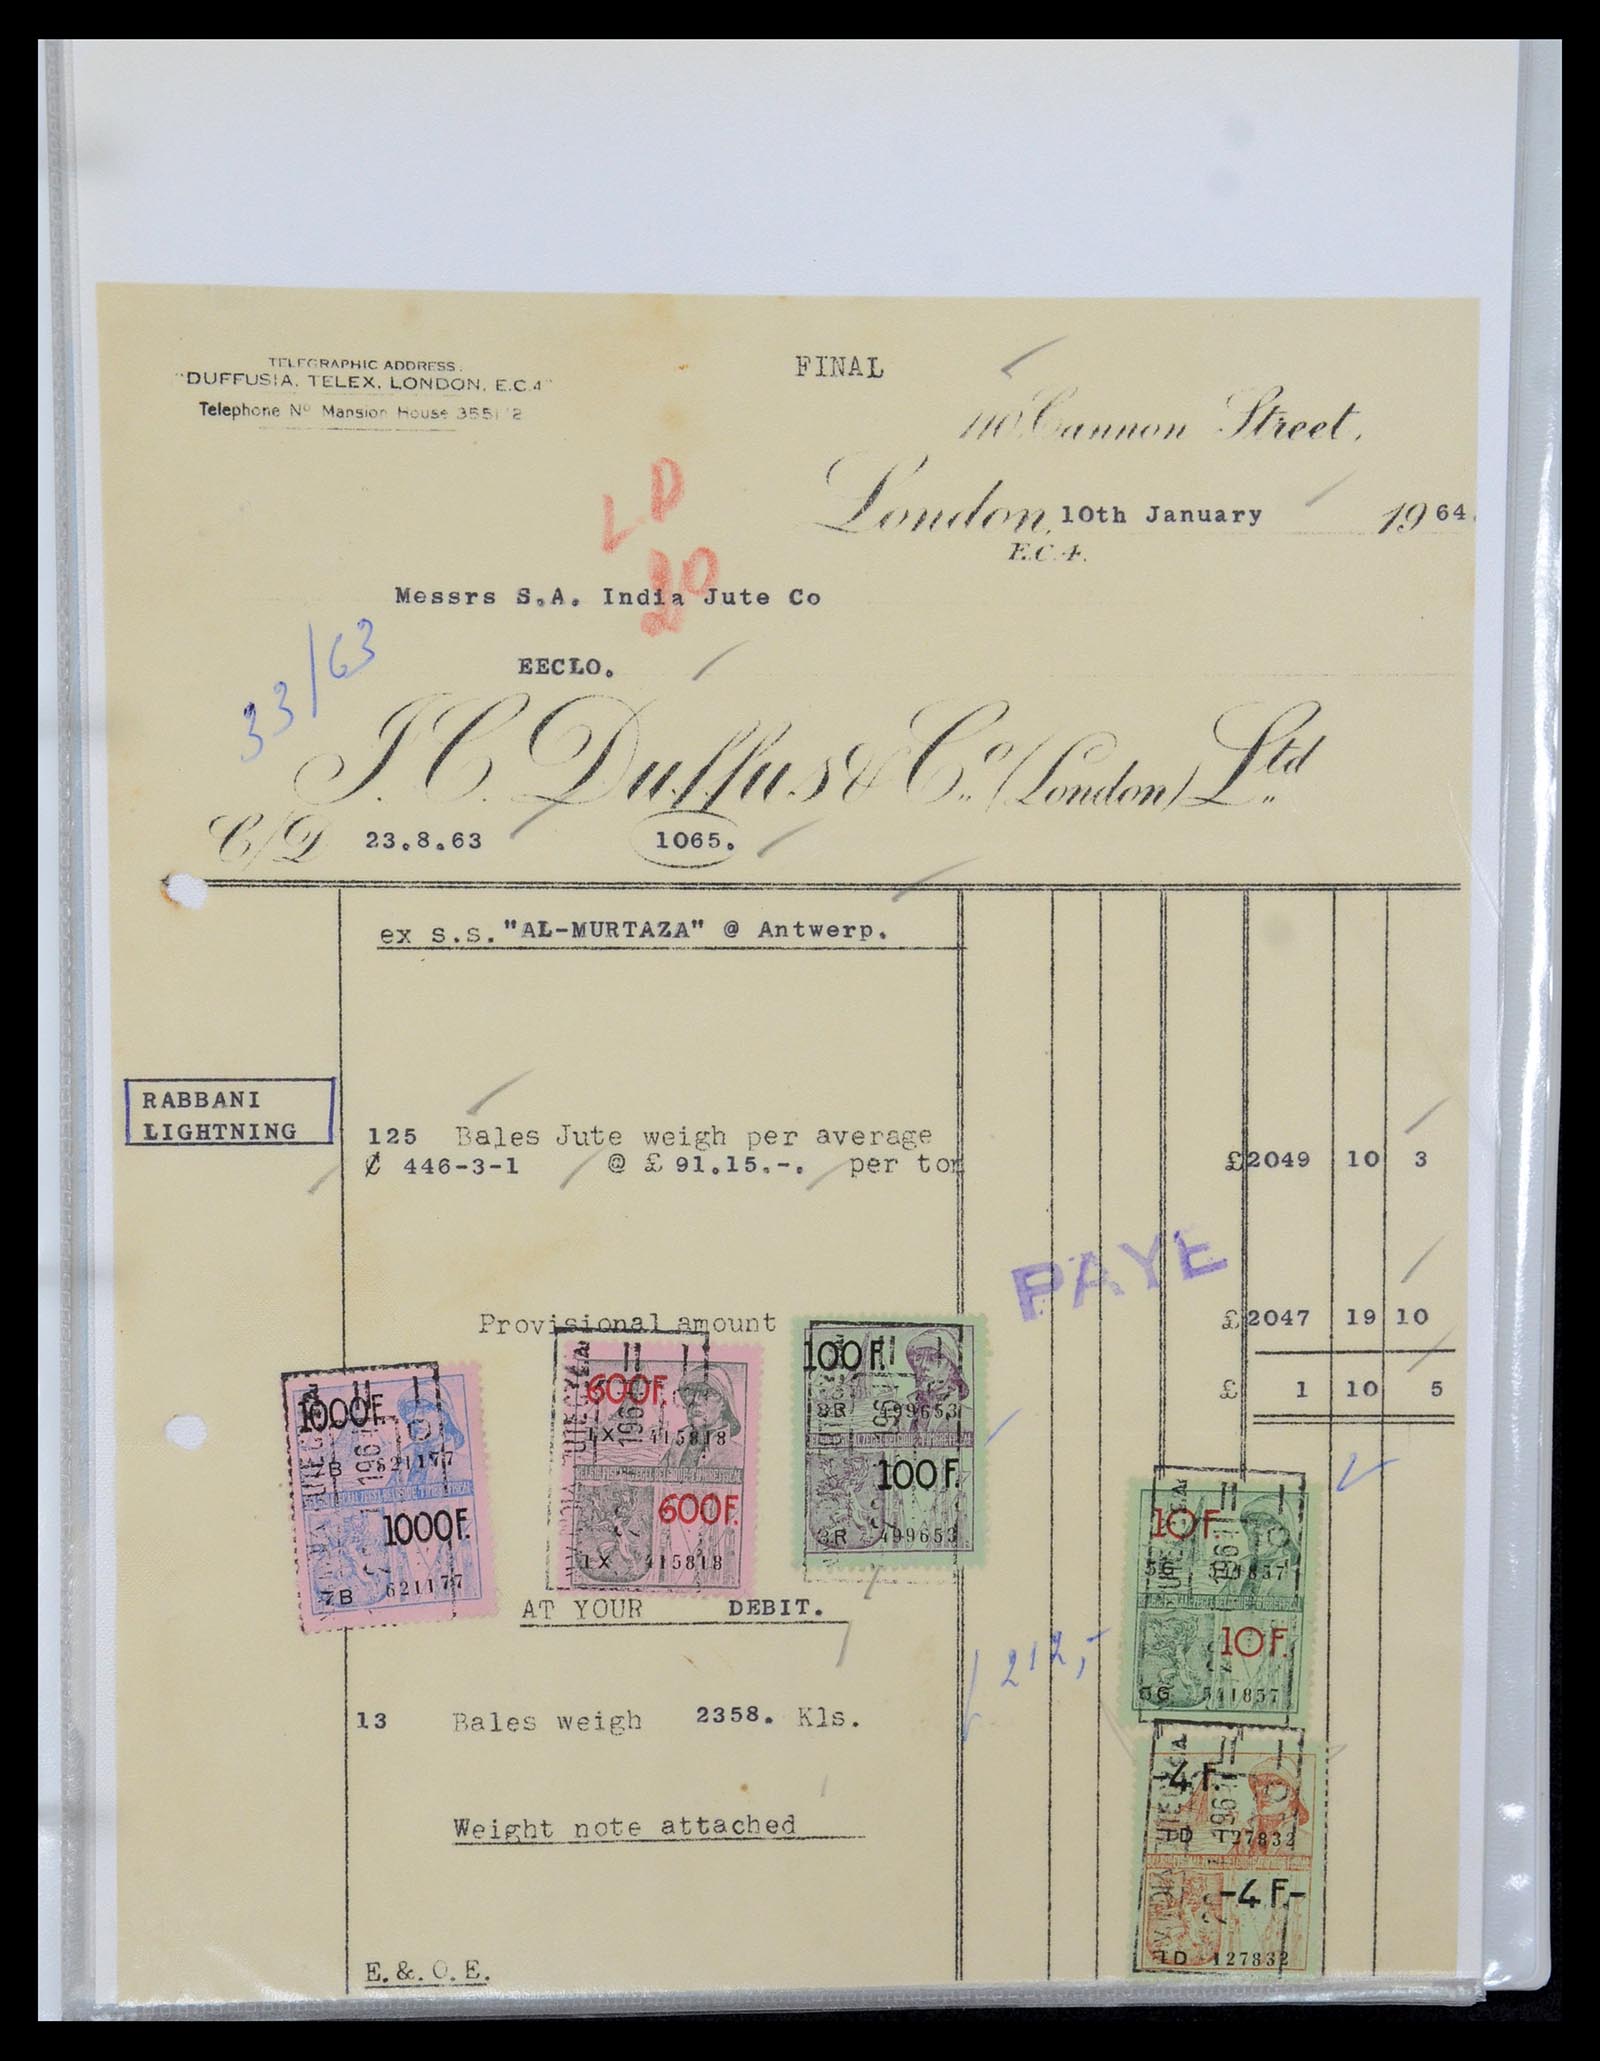 TELEGRAPHIC ADDRESS.
"DUFFUSIA, TELEX, LONDON, E.C.4"
Telephone Nº Mansion House
FINAL
110 Cannon Street,
London, 10th January 1964.
E.C.4.
L D
20
Messrs S.A. India Jute Co
EECLO.
33/63
J. C. Duffus & Co. (London) Ltd
C/D 23.8.63 1065.
ex s.s. "AL-MURTAZA" @ Antwerp.
RABBANI
LIGHTNING
125 Bales Jute weigh per average
₵ 446-3-1 @ £ 91.15.-. per ton £2049 10 3
PAYE
Provisional amount £2047 19 10
£ 1 10 5
1000F.
7B 621177
1000F.
7B 621177
600F.
1X 415818
BELGIE-FISCALE ZEGEL BELGIQUE-TIMBRE FISCAL
600F.
1X 415818
100F.
3R 499653
100F.
3R 499653
10F.
5G 541857
10F.
5G 541857
-4F.-
1D 127832
-4F.-
1D 127832
AT YOUR DEBIT.
212,-
13 Bales weigh 2358. Kls.
Weight note attached
E. & O. E.